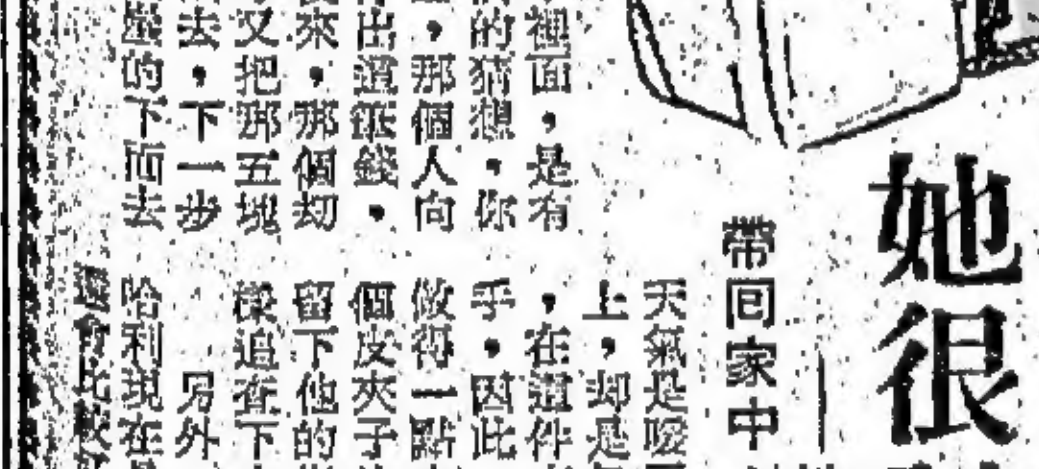 她很
帶囘家中
裡面，是有
的猜想，你
，那個人向
出這張錢，
來，那個刼
又把那五塊
去，下一步
的下面去
天氣是暖
上，却是
，在這件
乎，因此
做得一點
個皮夾子
留下他的
追查下
另外
哈利現在